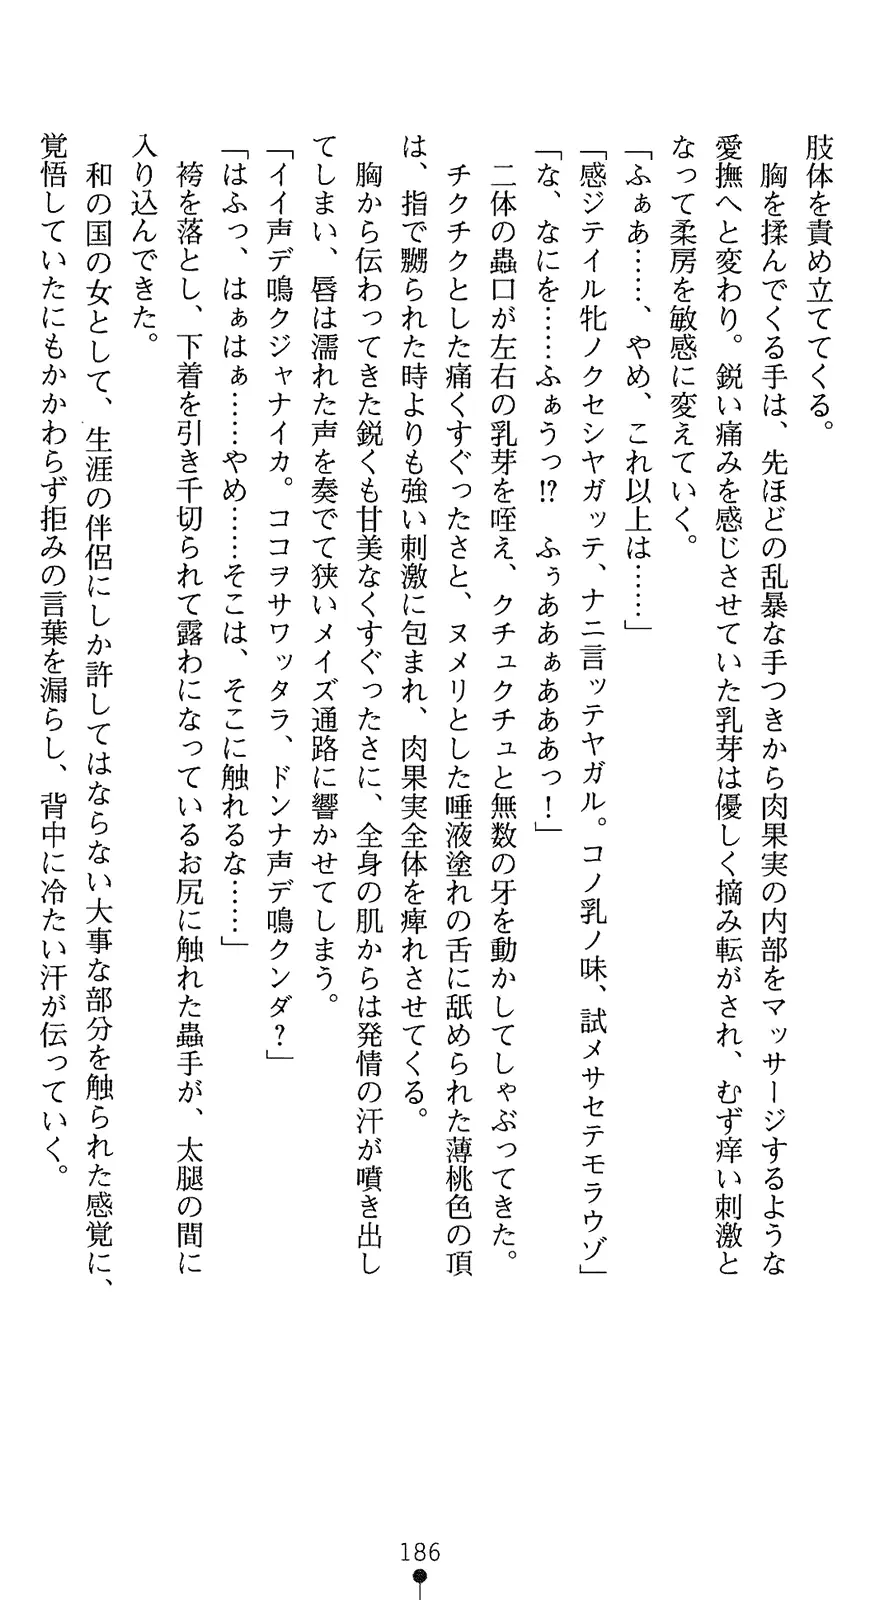 肢体を責め立ててくる。
胸を揉んでくる手は、先ほどの乱暴な手つきから肉果実の内部をマッサージするような
愛撫へと変わり。鋭い痛みを感じさせていた乳芽は優しく摘み転がされ、むず痒い刺激と
なって柔房を敏感に変えていく。
「ふぁあ……、やめ、これ以上は……」
「感ジテイル牝ノクセシヤガッテ、ナニ言ッテヤガル。コノ乳ノ味、試メサセテモラウゾ」
「な、なにを……ふぁうっ!?　ふぅああぁあああっ！」
二体の蟲口が左右の乳芽を咥え、クチュクチュと無数の牙を動かしてしゃぶってきた。
チクチクとした痛くすぐったさと、ヌメリとした唾液塗れの舌に舐められた薄桃色の頂
は、指で嬲られた時よりも強い刺激に包まれ、肉果実全体を痺れさせてくる。
胸から伝わってきた鋭くも甘美なくすぐったさに、全身の肌からは発情の汗が噴き出し
てしまい、唇は濡れた声を奏でて狭いメイズ通路に響かせてしまう。
「イイ声デ鳴クジャナイカ。ココヲサワッタラ、ドンナ声デ鳴クンダ？」
「はふっ、はぁはぁ……やめ……そこは、そこに触れるな……」
袴を落とし、下着を引き千切られて露わになっているお尻に触れた蟲手が、太腿の間に
入り込んできた。
和の国の女として、生涯の伴侶にしか許してはならない大事な部分を触られた感覚に、
覚悟していたにもかかわらず拒みの言葉を漏らし、背中に冷たい汗が伝っていく。
186